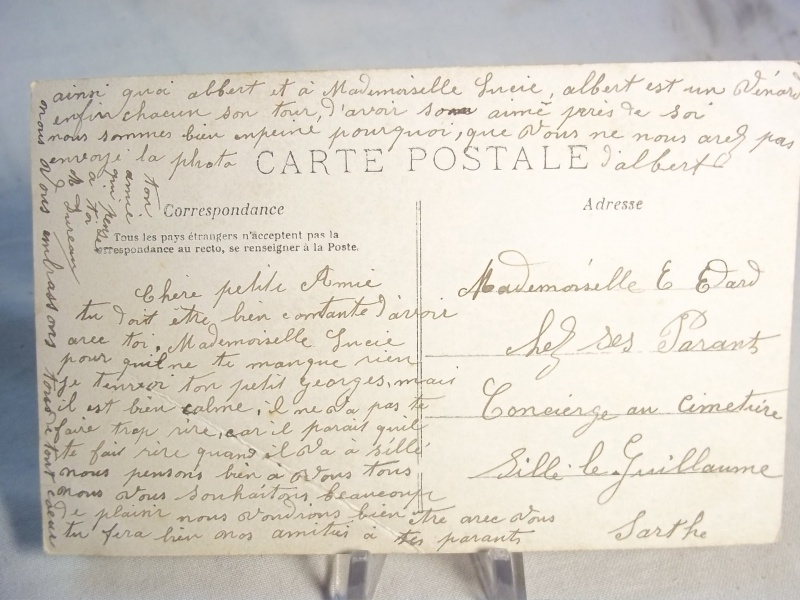 CARTE POSTALE
Correspondance
Tous les pays étrangers n'acceptent pas la
correspondance au recto, se renseigner à la Poste.
Adresse
Chère petite Amie
tu doit être bien contante d'avoir
avec toi, Mademoiselle Lucie
pour quil ne te manque rien
je t'enveoi ton petit Georges, mais
il est bien calme, il ne va pas te
faire trop rire, car il parait quil
te fait rire quand il va à Sillé
nous pensons bien à vous tous
nous vous souhaitons beaucoup
de plaisir nous voudrions bien être avec vous
tu fera bien nos amitiés à tes parants
ainsi quai albert et à Mademoiselle Lucie, albert est un vénard
enfin chacun son tour, d'avoir son aimé près de soi
nous sommes bien enpeine pourquoi, que vous ne nous avez pas
envoyé la photo d'albert
nous vous embrassons tous de tout coeur
ton
amie
qui pense
à toi
Mademoiselle E Edard
Chez ses Parants
Concierge au cimetière
Sillé le Guillaume
Sarthe